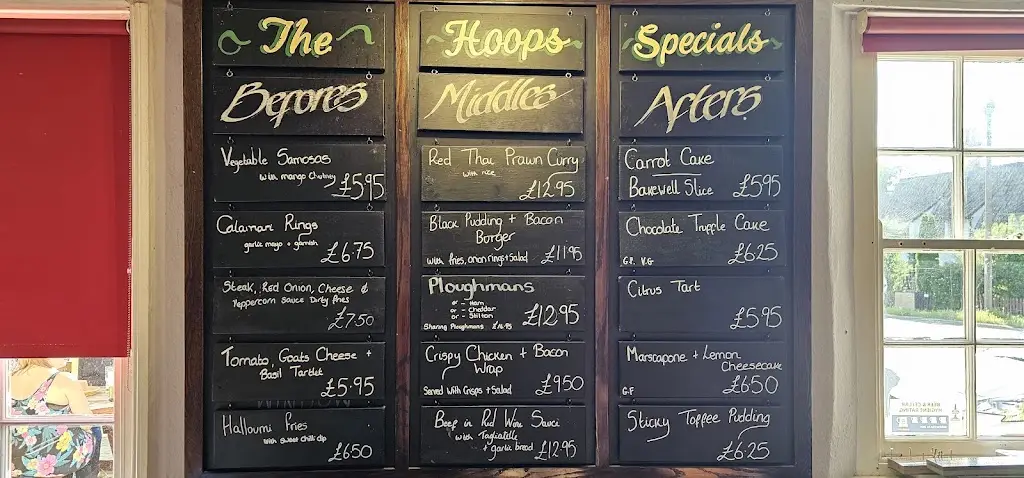 The Hoops Specials
Befores
Vegetable Samosas
with mango Chutney £5.95
Calamari Rings
garlic mayo + garnish
£6.75
Steak, Red Onion, Cheese &
Peppercorn Sauce Dirty fries
£7.50
Tomato, Goats Cheese +
Basil Tartlet
£5.95
Halloumi Fries
with sweet chilli dip
£6.50
Middles
Red Thai Prawn Curry
with rice
£12.95
Black Pudding + Bacon
Burger
with fries, onion rings + salad £11.95
Ploughmans
or - Ham
or - Cheddar
or - Stilton
£12.95
Sharing Ploughmans
Crispy Chicken + Bacon
Wrap
Served with Crisps + Salad £9.50
Beef in Red Wine Sauce
with Tagliatelle
+ garlic bread £12.95
Afters
Carrot Cake
Bakewell Slice £5.95
Chocolate Truffle Cake
G.F. V.G £6.25
Citrus Tart
£5.95
Marscapone + Lemon
Cheesecake
G.F £6.50
Sticky Toffee Pudding
£6.25